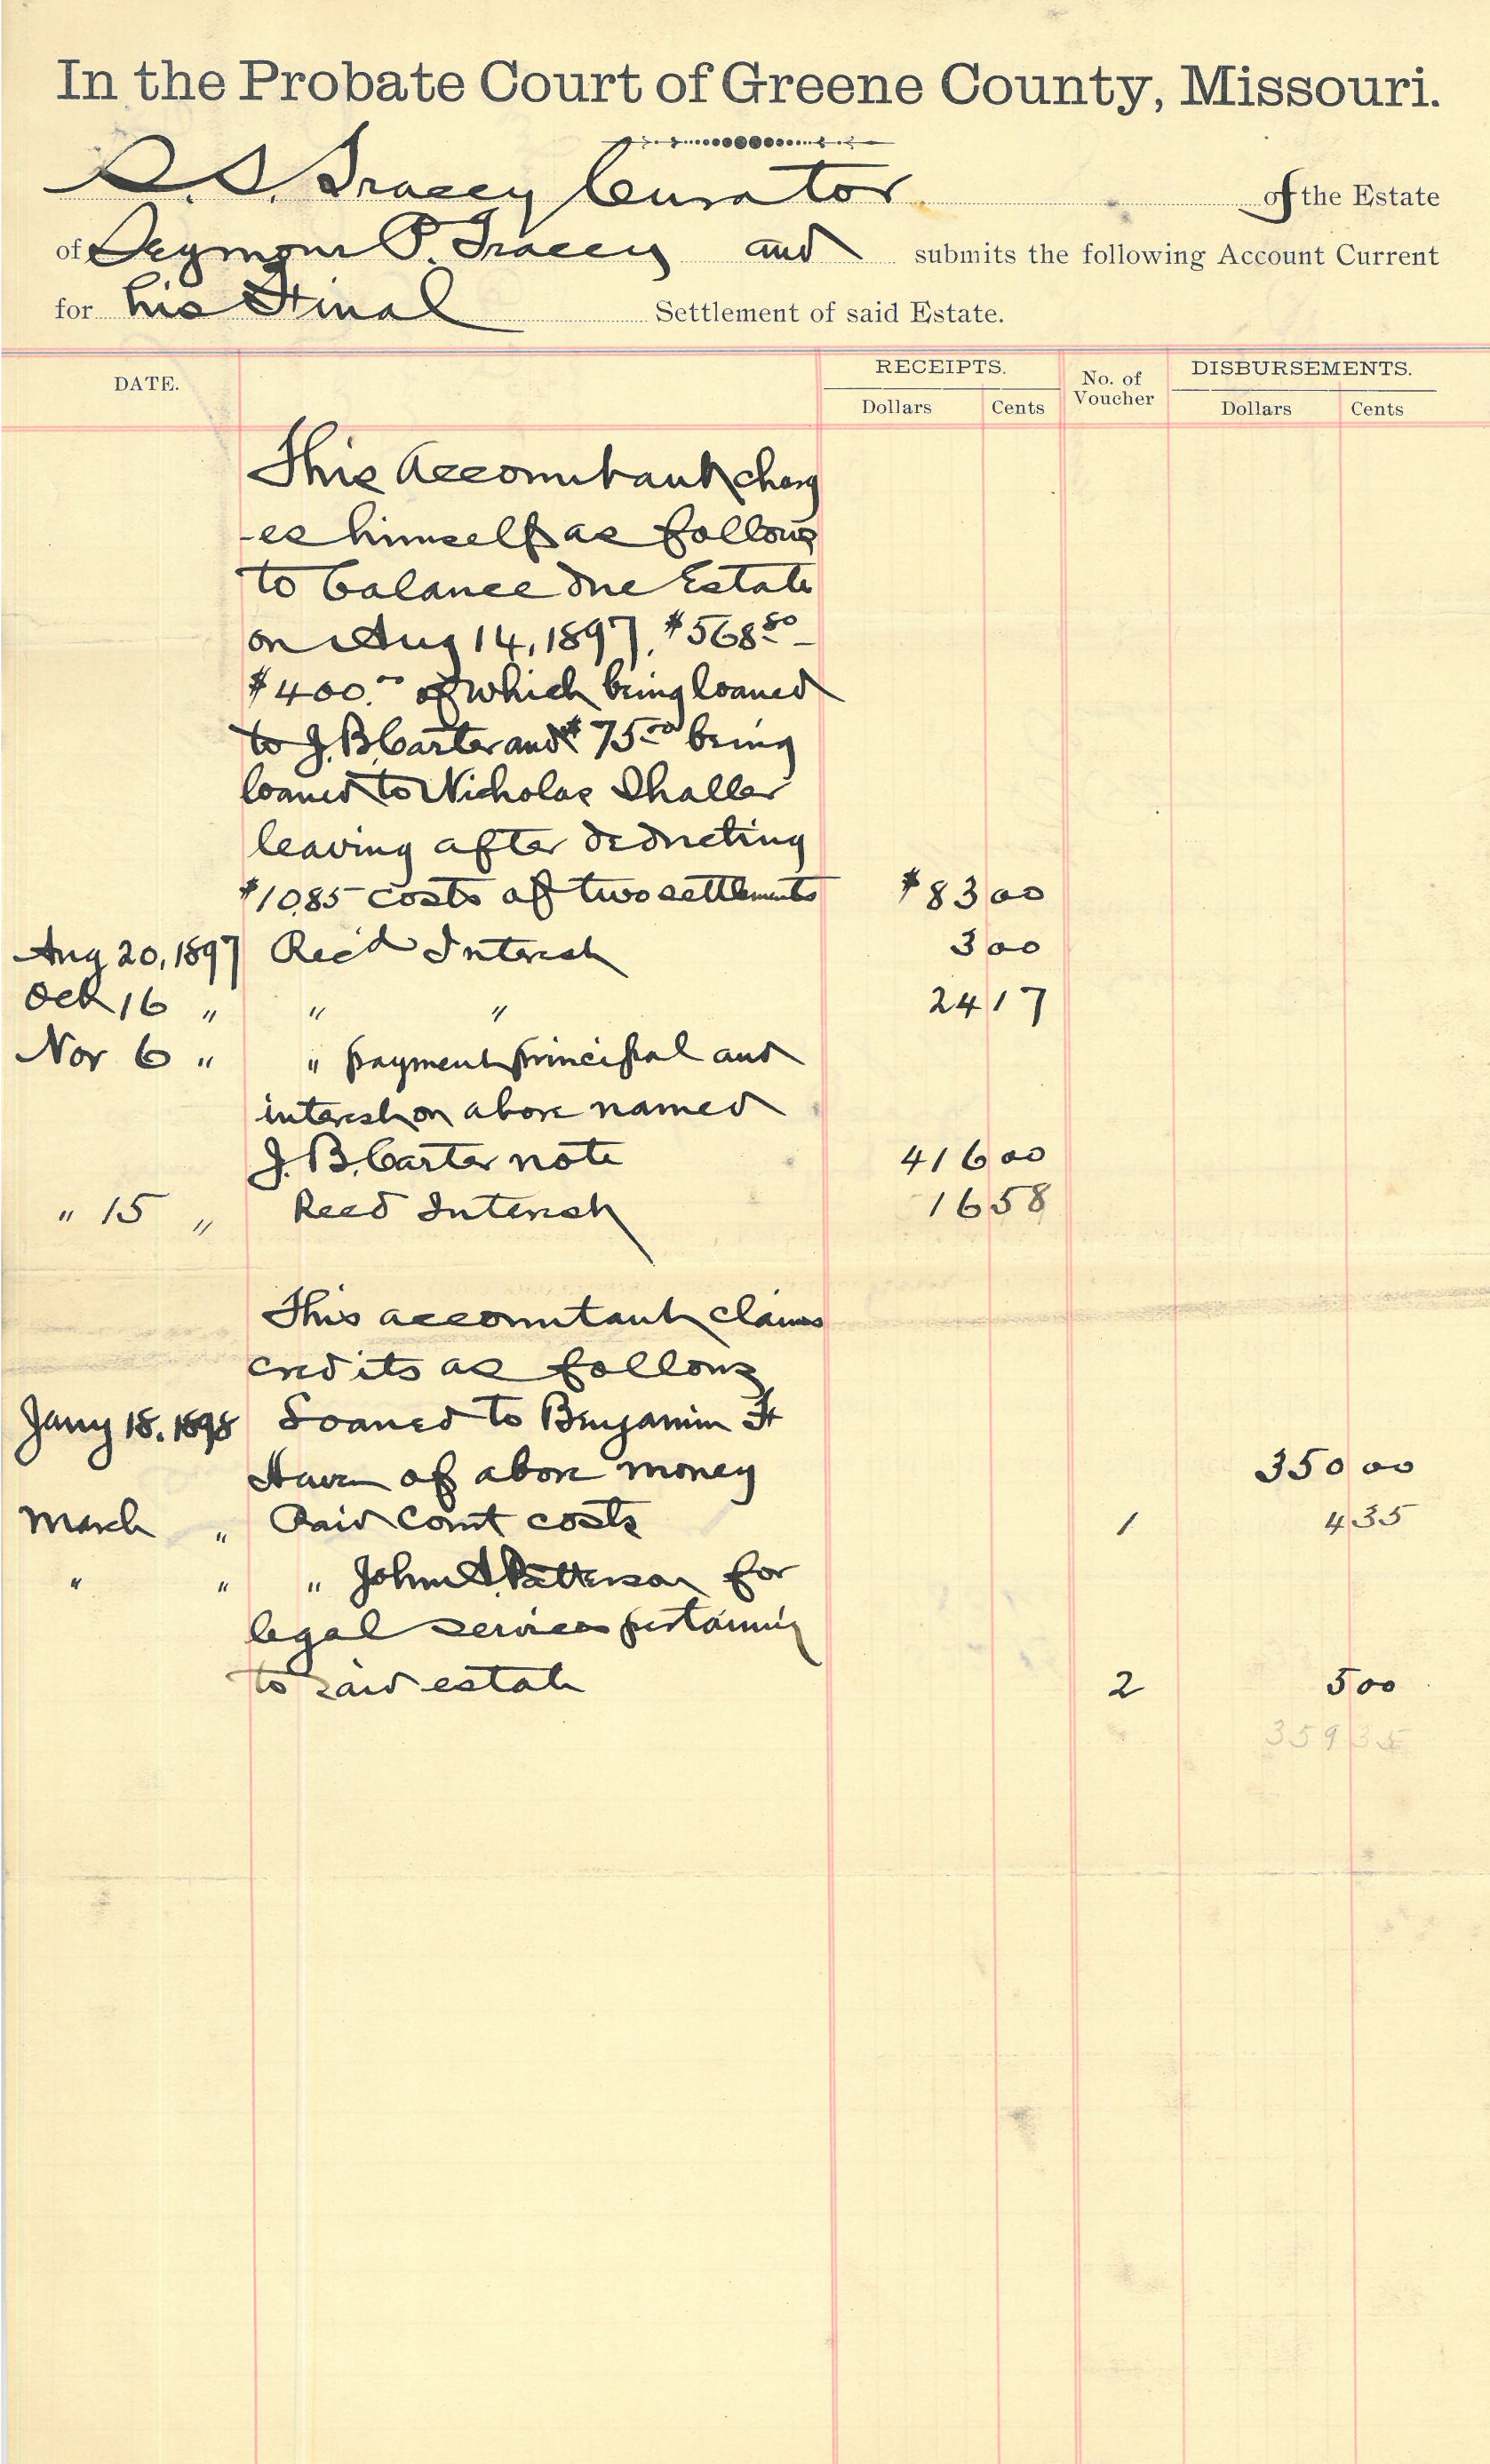 In the Probate Court of Greene County, Missouri.
S. S. Tracey Curator of the Estate
of Seymour P. Tracey and submits the following Account Current
for his Final Settlement of said Estate.
DATE. RECEIPTS. No. of Voucher DISBURSEMENTS.
Dollars Cents Dollars Cents
This Accountant charg
-es himself as follows
to balance due Estate
on Aug 14, 1897, $568.80 -
$400.00 of which being loaned
to J. B. Carter and $75.00 being
loaned to Nicholas
leaving after deducting
$10.85 costs of two settlements $83 00
Aug 20, 1897 Rec'd Interest 3 00
Oct 16 " " " 24 17
Nov 6 " " payment principal and
interest on above named
J. B. Carter note 416 00
" 15 " Recd Interest 16 58
This accountant claims
credits as follows
Jany 18, 1898 Loaned to Benjamin F
of above money 350 00
March " Paid Court costs 1 4 35
" " " John A. Patterson for
legal services pertaining
to said estate 2 5 00
359 35